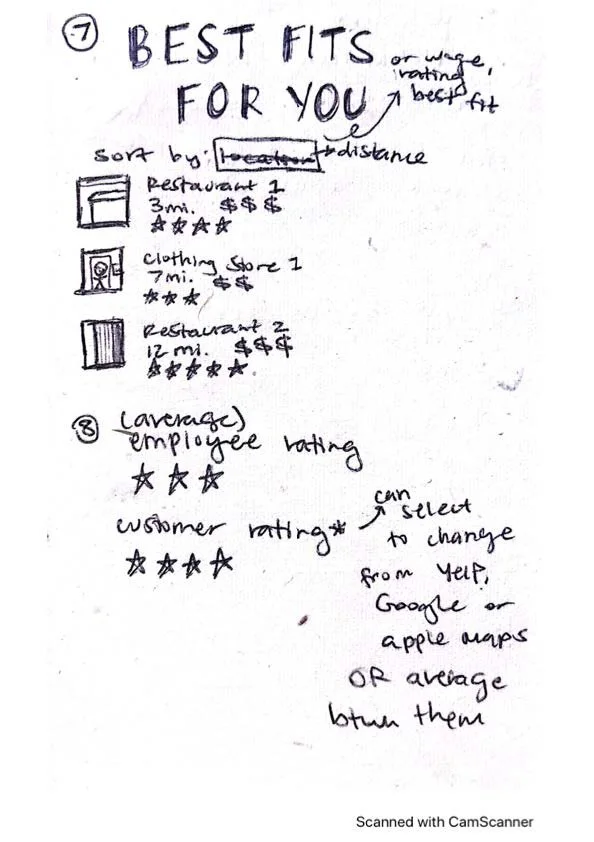 7
BEST FITS
FOR YOU
or wage,
rating
best fit
sort by: location → distance
Restaurant 1
3mi. $$$
☆☆☆☆
Clothing Store 1
7mi. $$
☆☆☆
Restaurant 2
12 mi. $$$
☆☆☆☆☆
8 (average)
employee rating
☆☆☆
customer rating*
☆☆☆☆
can
select
to change
from Yelp,
Google or
apple maps
OR average
btwn them
Scanned with CamScanner